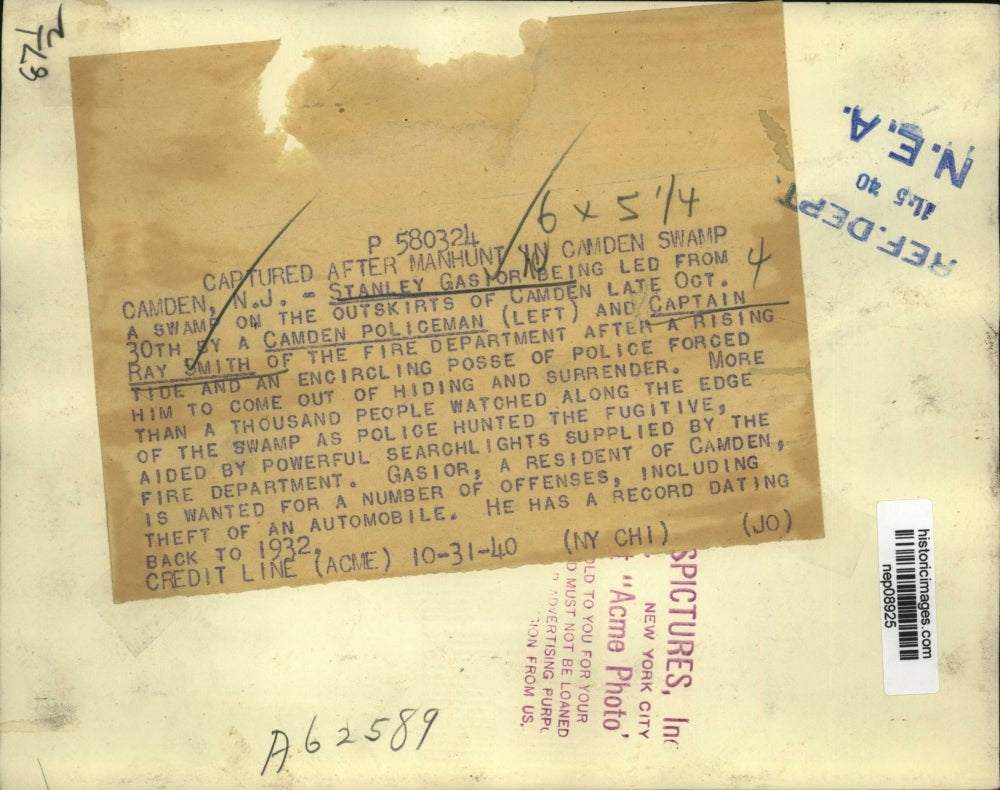 67½
6 x 5 1/4
4
P 580324
CAPTURED AFTER MANHUNT IN CAMDEN SWAMP
CAMDEN, N.J. - STANLEY GASIOR BEING LED FROM
A SWAMP ON THE OUTSKIRTS OF CAMDEN LATE OCT.
30TH BY A CAMDEN POLICEMAN (LEFT) AND CAPTAIN
RAY SMITH OF THE FIRE DEPARTMENT AFTER A RISING
TIDE AND AN ENCIRCLING POSSE OF POLICE FORCED
HIM TO COME OUT OF HIDING AND SURRENDER. MORE
THAN A THOUSAND PEOPLE WATCHED ALONG THE EDGE
OF THE SWAMP AS POLICE HUNTED THE FUGITIVE,
AIDED BY POWERFUL SEARCHLIGHTS SUPPLIED BY THE
FIRE DEPARTMENT. GASIOR, A RESIDENT OF CAMDEN,
IS WANTED FOR A NUMBER OF OFFENSES, INCLUDING
THEFT OF AN AUTOMOBILE. HE HAS A RECORD DATING
BACK TO 1932.
CREDIT LINE (ACME) 10-31-40 (NY CHI) (JO)
REF. DEPT.
N.E.A.
SPICTURES, Inc
NEW YORK CITY
"Acme Photo"
OLD TO YOU FOR YOUR
D MUST NOT BE LOANED
ADVERTISING PURPO
ION FROM US.
historicimages.com
nep08925
A62589